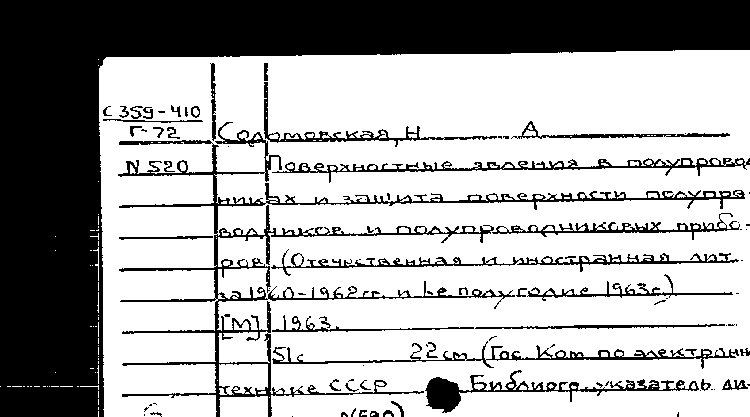 С359-410
Г-72 Соломовская, Н А
N 520 Поверхностные явления в полупровод
никах и защита поверхности полупро-
водников и полупроводниковых прибо-
ров. (Отечественная и иностранная лит.
за 1960-1962 гг. и I-е полугодие 1963г.)
[М], 1963.
51с 22 см (Гос. Ком. по электронн
технике СССР Библиогр. указатель ли-
N(520)